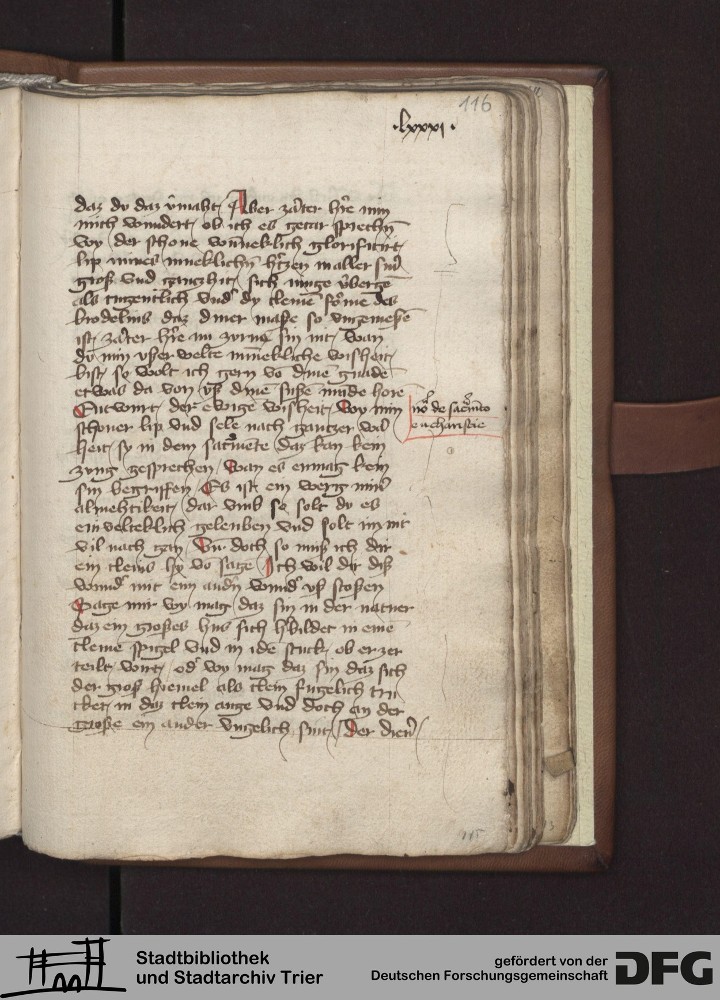 116
·lxxxi·
daz du daz vmaht Aber zarter h're min
mich wundert ob ich es getar sprechen
wy der schone wunneklich glorificirt
lip mines mineklichen h'tzen in aller sin'
groß vnd gantzheit sich muge v'berge
als tugentlich vnd dy kleine forme des
brodelins daz diner maße so vngemeße
ist zarter h're nu zurne sin nit wan
du min vßer welte mineklliche wisheit
bist so wolt ich gern vo dine gnade
etwas da von vß dine süße munde hore
Entwurt der ewige wisheit Wy min
schoner lip vnd sele nach gantzer war
heit sy in dem sacramete daz kan kein
zung gesprechen wan es enmag kein
sin begriffen Es ist ein werg min'
almehtikeit dar vmb so solt du es
einvelteklich gelouben vnd solt im nit
vil nach gan Vn doch so muß ich dir
ein kleins hy vo sage Ich wil dir diß
wund' mit eim andn wund' vß stoßen
Sage mir wy mag daz sin in der natuer
daz ein großes hus sich h' bildet in eine
kleine spigel vnd in ide stuck ob er zer
teilt wirt od' wy mag daz sin daz sich
der groß hiemel als klein fugelich tru
cket in daz klein auge vnd doch an der
große ein ander vngelich sint Der dien'
no de sacrameto
eucharistie
115
Stadtbibliothek
und Stadtarchiv Trier
gefördert von der
Deutschen Forschungsgemeinschaft
DFG